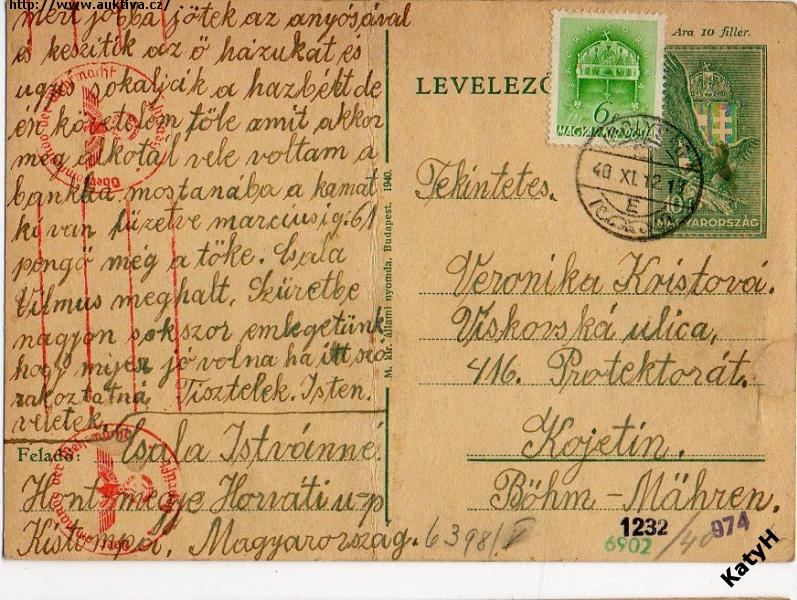 http://www.auktiva.cz/
mert jobba jötek az anyósával
es keszitik az ő házukat és
ugyis sokalják a hazbért de
en követelem tőle amit akkor
meg alkotál vele voltam a
bankba mostanába a kamat
ki van fizetve marciusig. 61
pengő még a tőke. Csala
Vilmus meghalt, Szüretbe
nagyon sokszor emlegetünk
hogy mijen jó volna ha itt szo
rakoztatná Tisztelek. Isten.
veletek.
Feladó: Csala Istvánné
Hont megye Horváti u-p
Kistompa, Magyarország.
M. kir. állami nyomda, Budapest. 1940.
Ara 10 fillér.
LEVELEZŐ
6f
MAGYARORSZÁG
10
MAGYARORSZÁG
40 XI. 12 11
E
Tekintetes.
Veronika Kristová.
Viskovská ulica,
416. Protektorát.
Kojetin.
Böhm-Mähren.
6398/
1232 /40 974
6902
KatyH